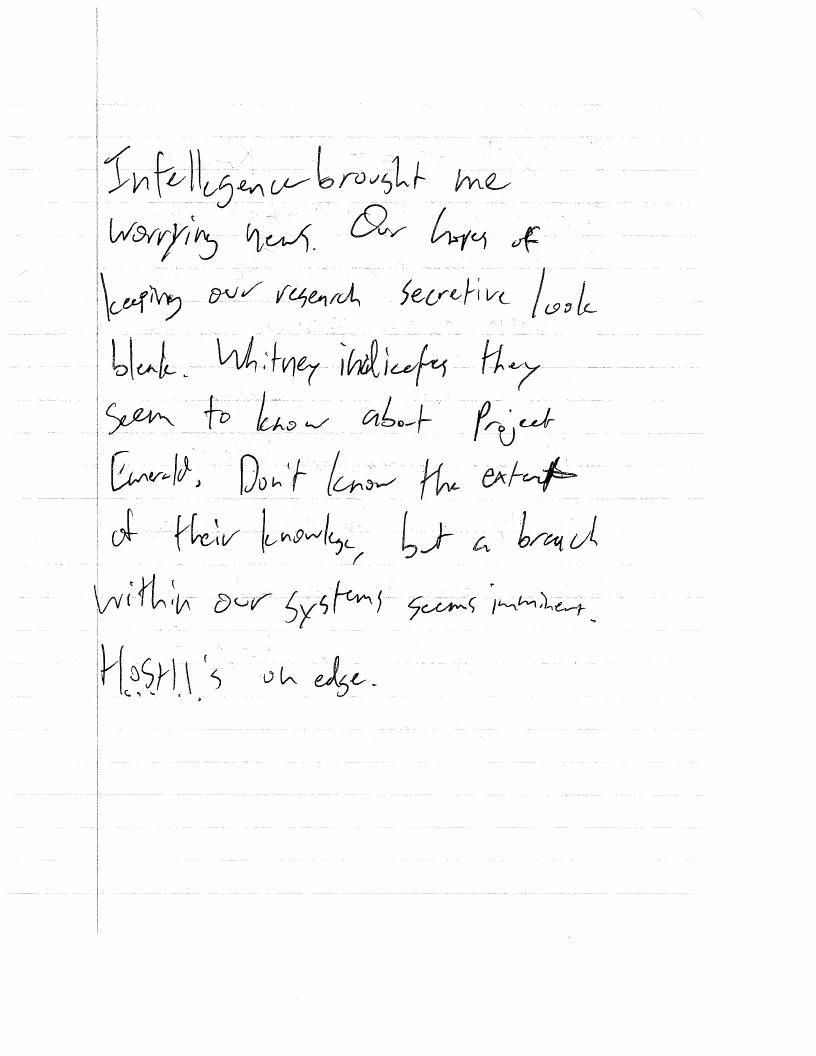 Intellegence brought me
worrying news. Our hopes of
keeping our research secretive look
bleak. Whitney indicates they
seem to know about Project
Emerald. Don't know the extent
of their knowlege, but a breach
within our systems seems imminent.
's on edge.